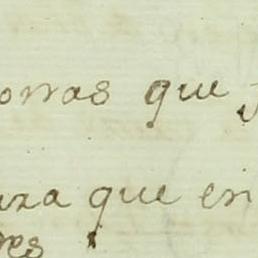 orras que
uza que en
res